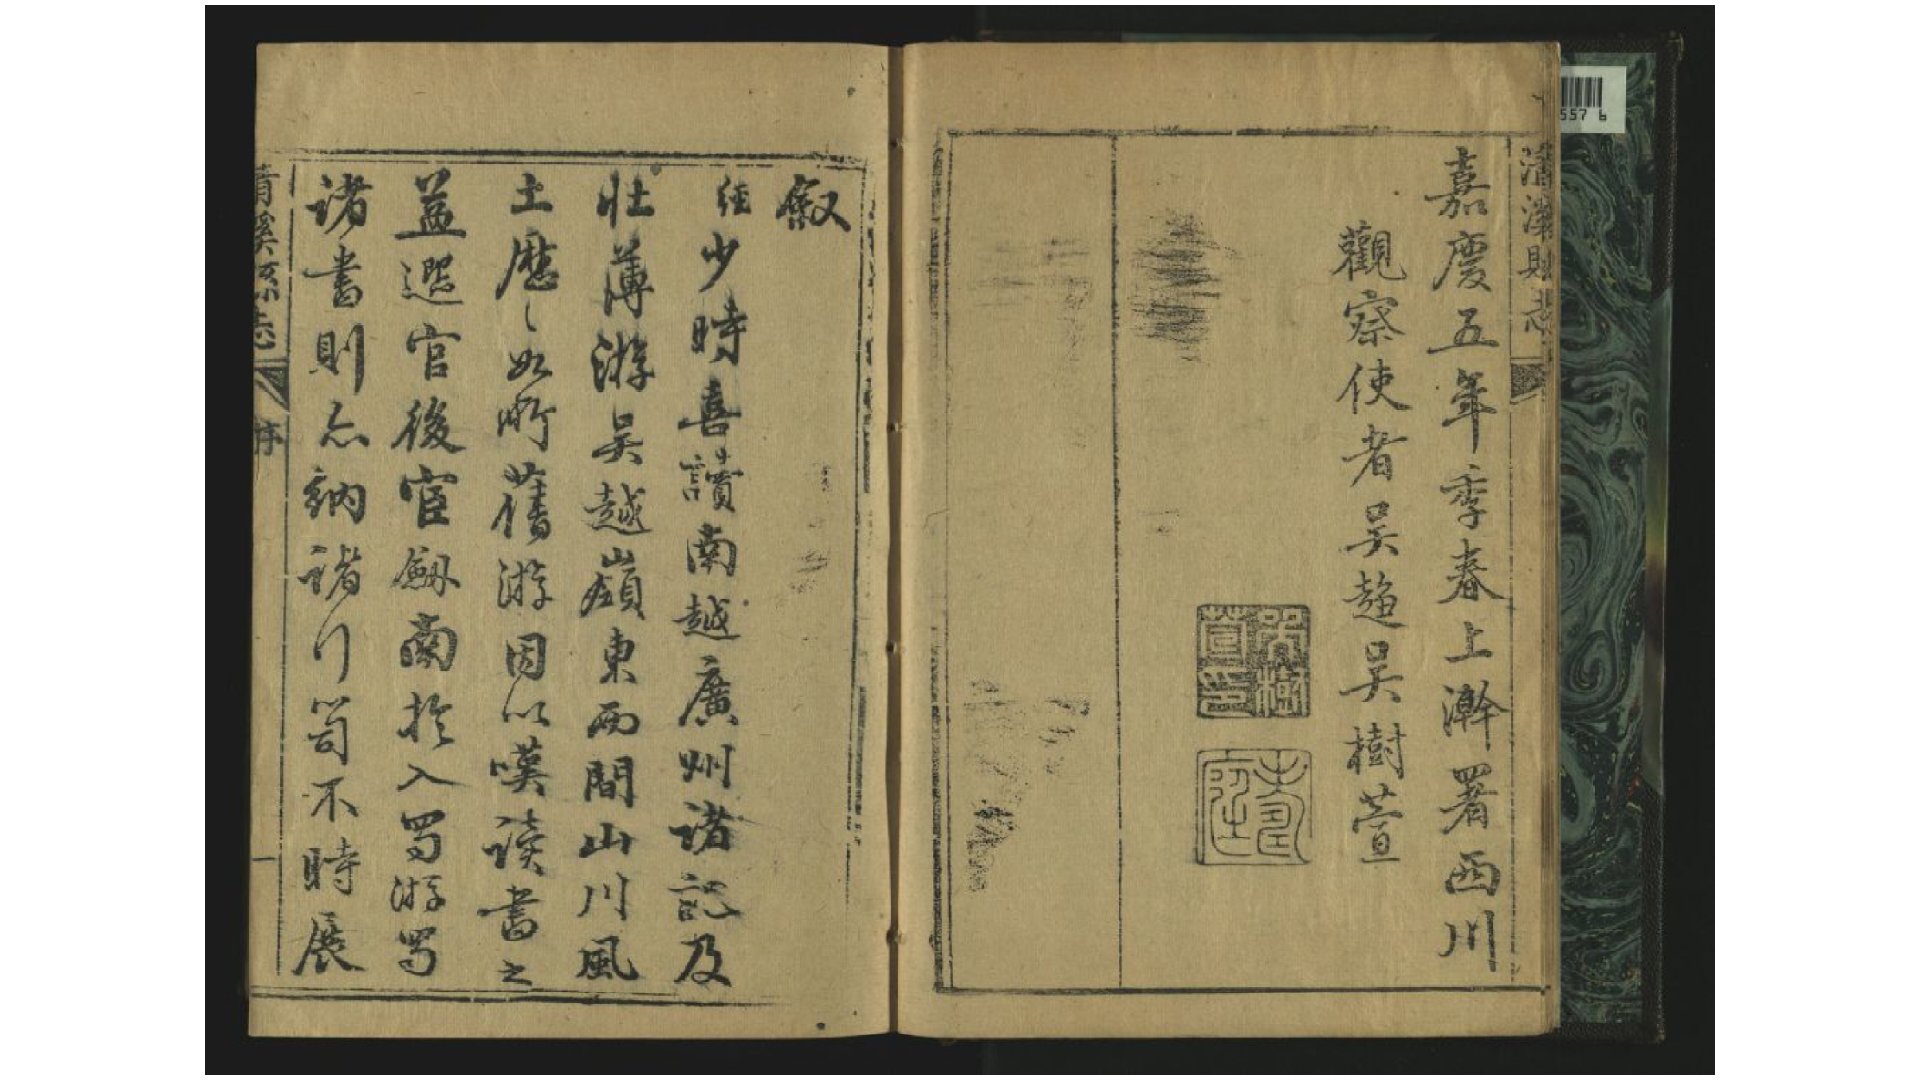 清溪縣志
嘉慶五年季春上澣署西川
觀察使者吳趨吳樹萱
吳樹萱印
叙
經少時喜讀南越廣州諸記及
壯薄游吳越嶺東西間山川風
土歷〻如所舊游因以嘆读書之
益選官後宦劔南於入蜀游蜀
諸書則亦納諸行笥不時展
清溪縣志
序
一
557 6